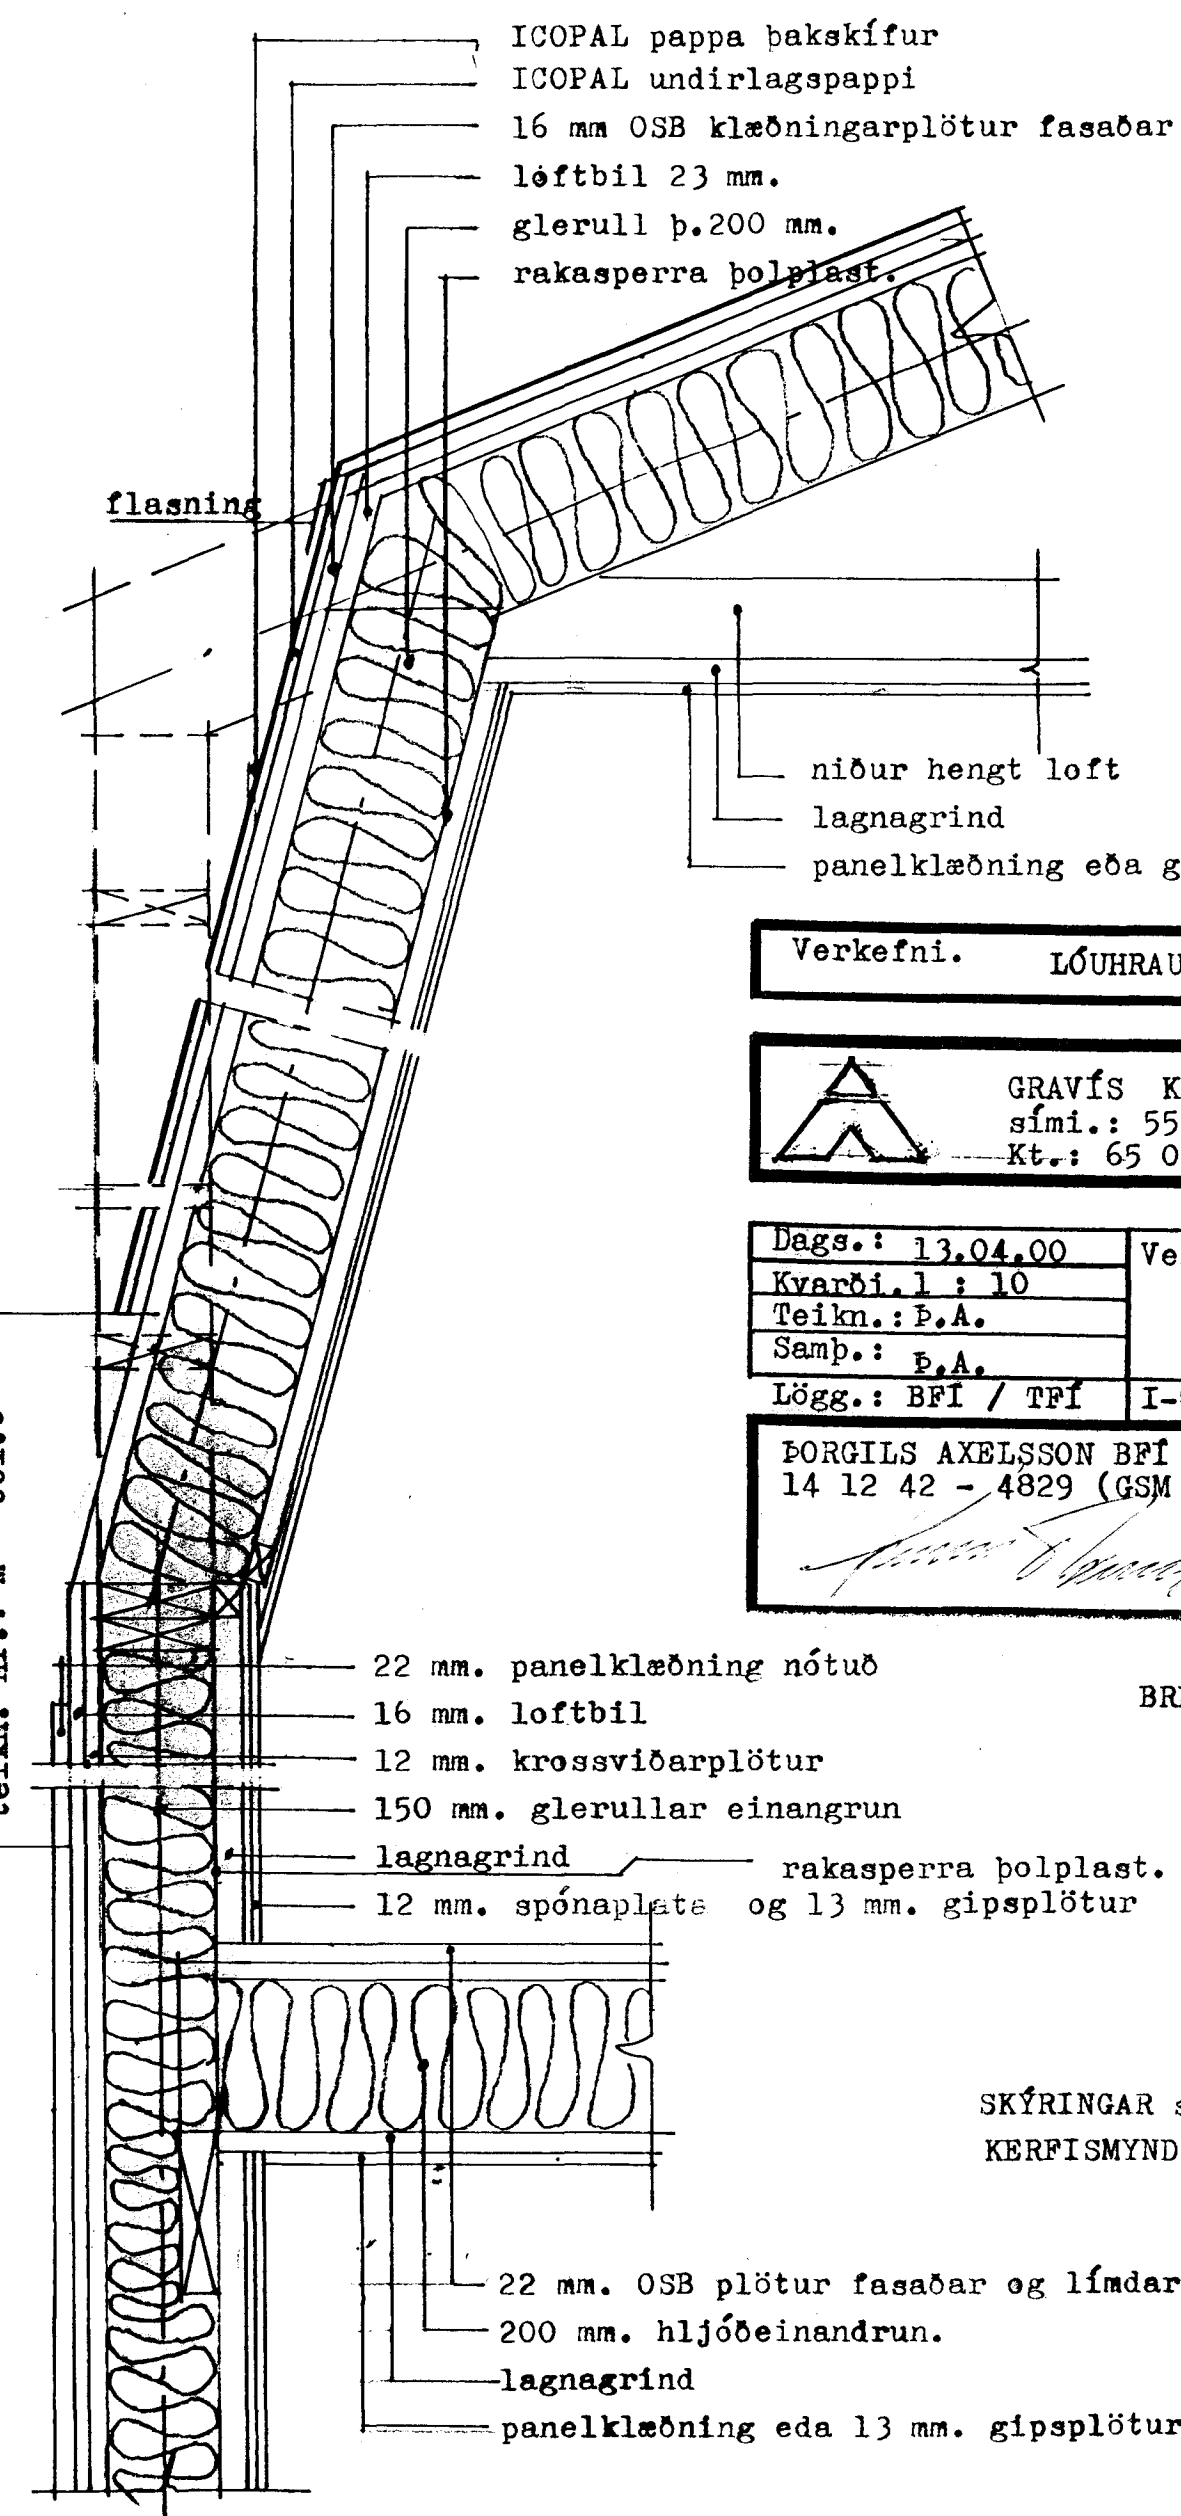 ICOPAL pappa þakskífur
ICOPAL undirlagspappi
16 mm OSB klæðningarplötur fasaðar
loftbil 23 mm.
glerull þ.200 mm.
rakasperra þolplast.
flasning
niður hengt loft
lagnagrind
panelklæðning eða g
Verkefni. LÓUHRAU
GRAVÍS K
sími.: 55
Kt.: 65 0
Dags.: 13.04.00
Ve
Kvarði. 1 : 10
Teikn.: Þ.A.
Samþ.: Þ.A.
Lögg.: BFÍ / TFÍ
I-
ÞORGILS AXELSSON BFÍ
14 12 42 - 4829 (GSM
22 mm. panelklæðning nótuð
16 mm. loftbil
12 mm. krossviðarplötur
150 mm. glerullar einangrun
lagnagrind
rakasperra þolplast.
12 mm. spónaplata og 13 mm. gipsplötur
SKÝRINGAR s
KERFISMYND
22 mm. OSB plötur fasaðar og límdar
200 mm. hljóðeinandrun.
lagnagrind
panelklæðning eda 13 mm. gipsplötur